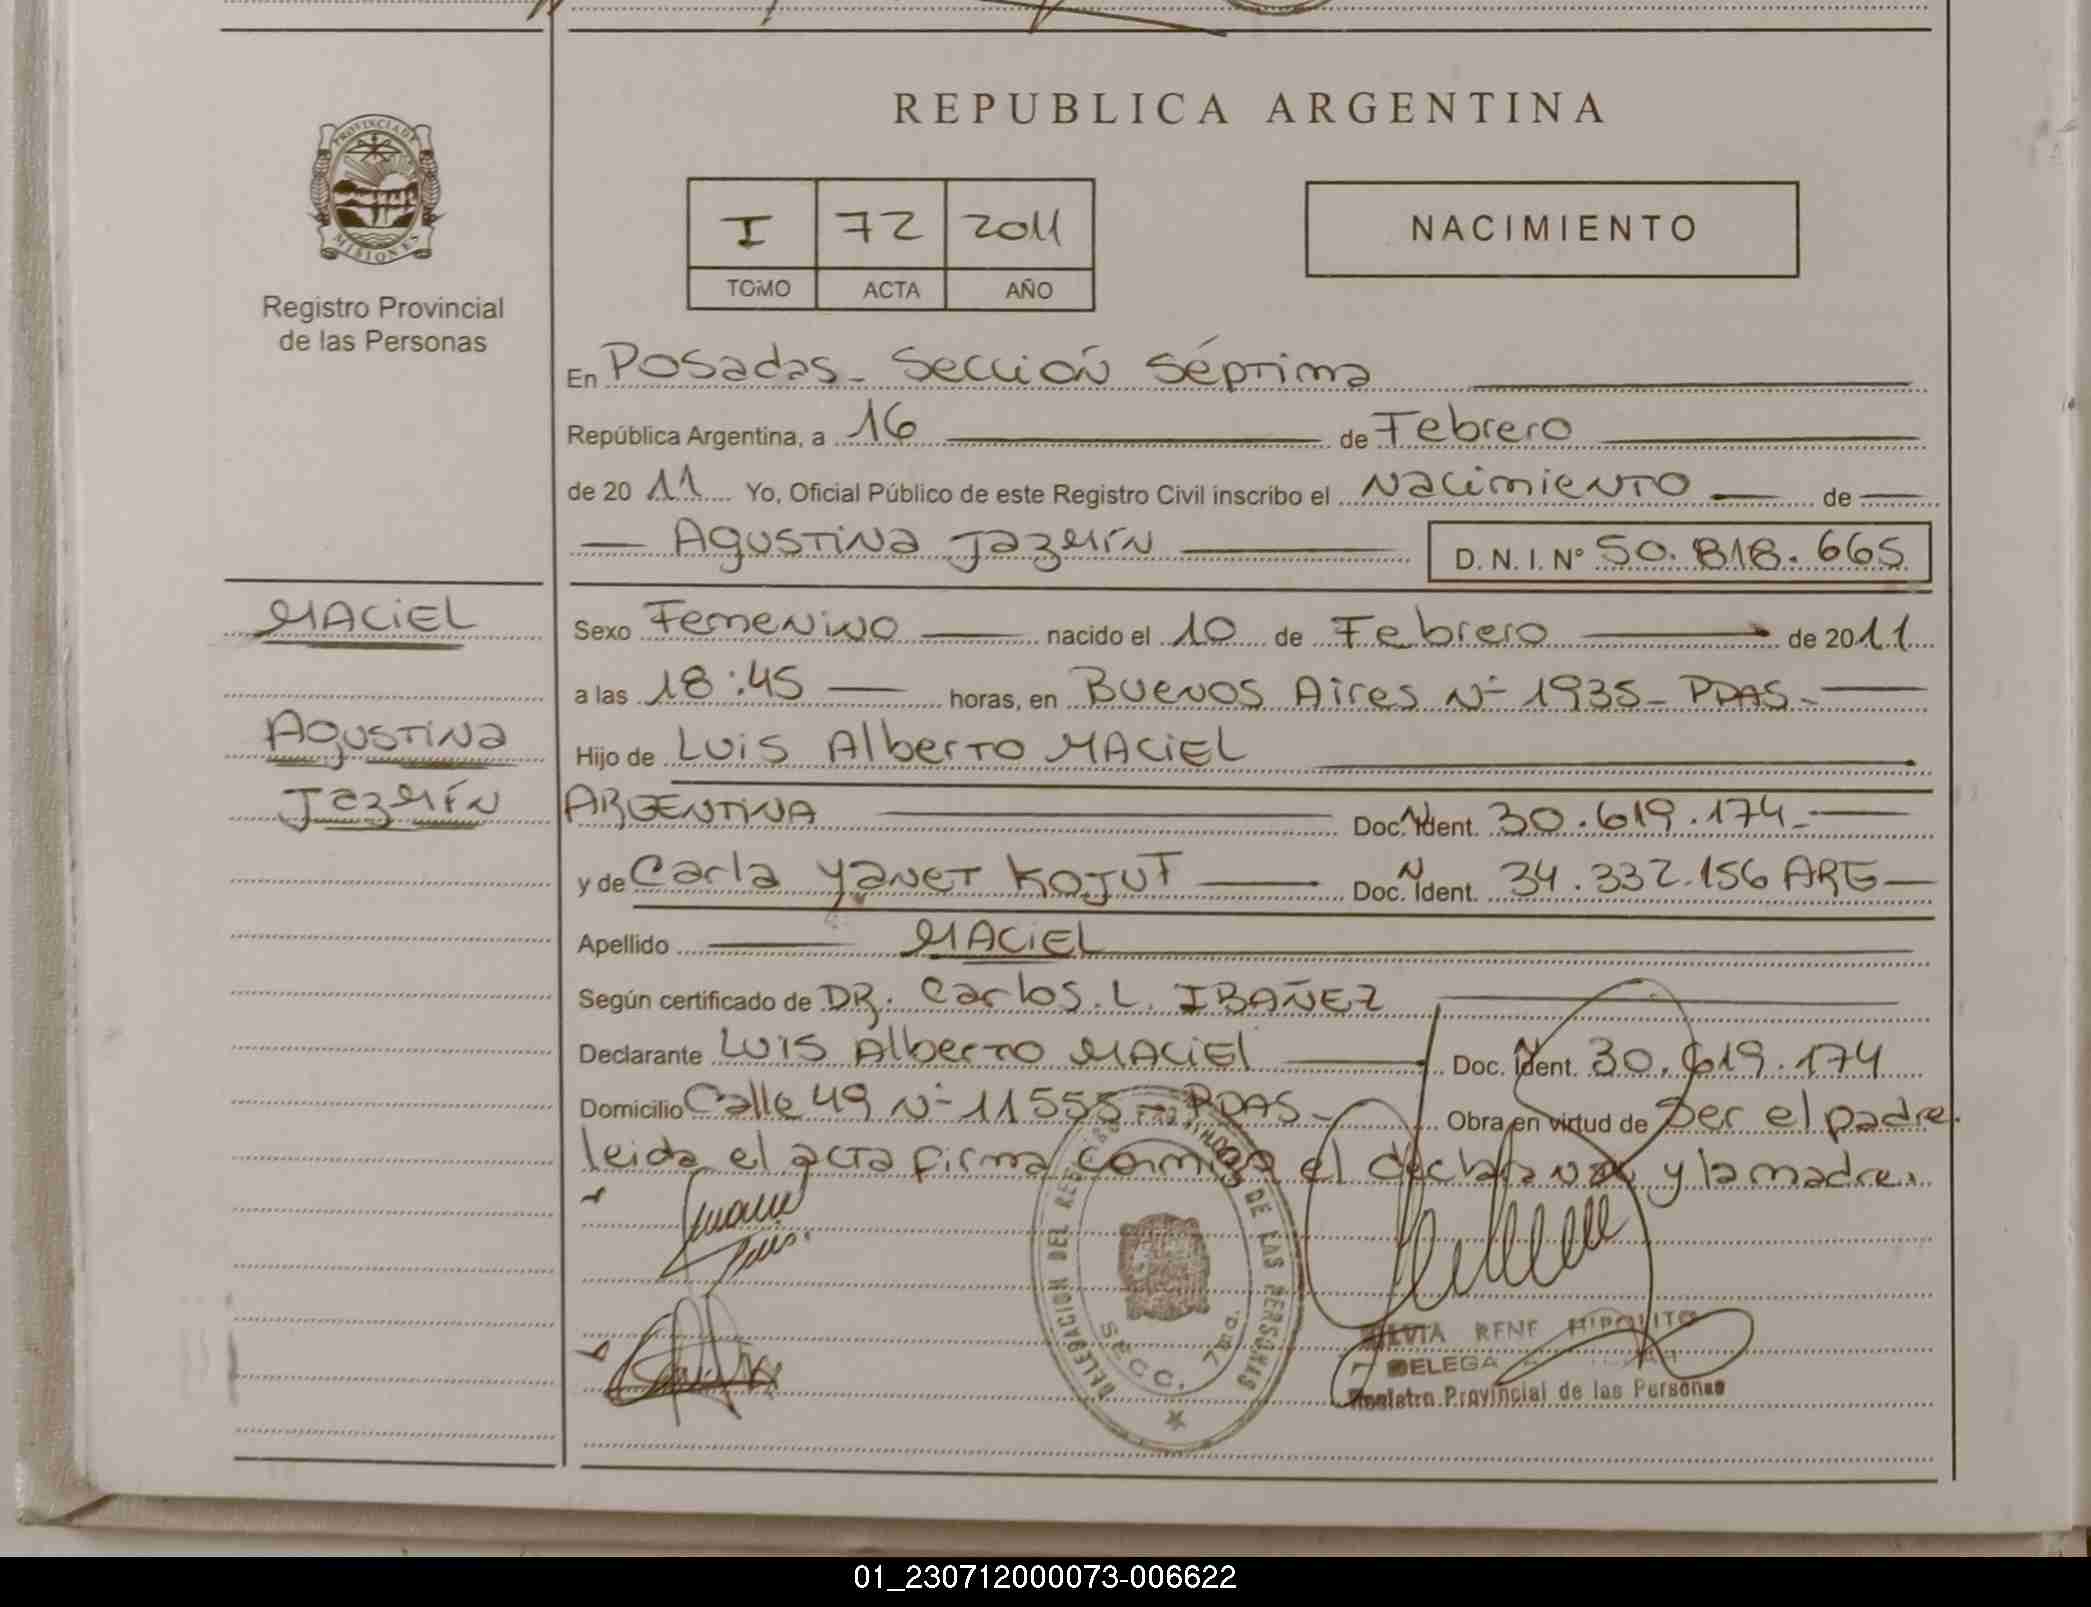 REPUBLICA ARGENTINA
PROVINCIA DE
MISIONES
Registro Provincial
de las Personas
I 72 2011
TOMO ACTA AÑO
NACIMIENTO
En Posadas - Sección Séptima
República Argentina, a 16 de Febrero
de 20 11 Yo, Oficial Público de este Registro Civil inscribo el Nacimiento de
Agustina Jazmín D. N. I. Nº 50.818.665
MACIEL
Agustina
Jazmín
Sexo Femenino nacido el 10 de Febrero de 2011
a las 18:45 horas, en Buenos Aires Nº 1935 - PDAS -
Hijo de Luis Alberto MACIEL
ARGENTINA Doc. N Ident. 30.619.174 -
y de Carla Yanet KOJUT Doc. N Ident. 34.332.156 ARG
Apellido MACIEL
Según certificado de DR. Carlos. L. IBAÑEZ
Declarante Luis Alberto MACIEL Doc. N Ident. 30.619.174
Domicilio Calle 49 Nº 11555 - PDAS - Obra en virtud de Ser el padre.
leida el acta firma conmigo el declarante y la madre.
DELEGACION DEL REGISTRO DE LAS PERSONAS
SECC. 7ma.
SILVIA RENE HIPOLITO
DELEGADA
Registro Provincial de las Personas
01_230712000073-006622